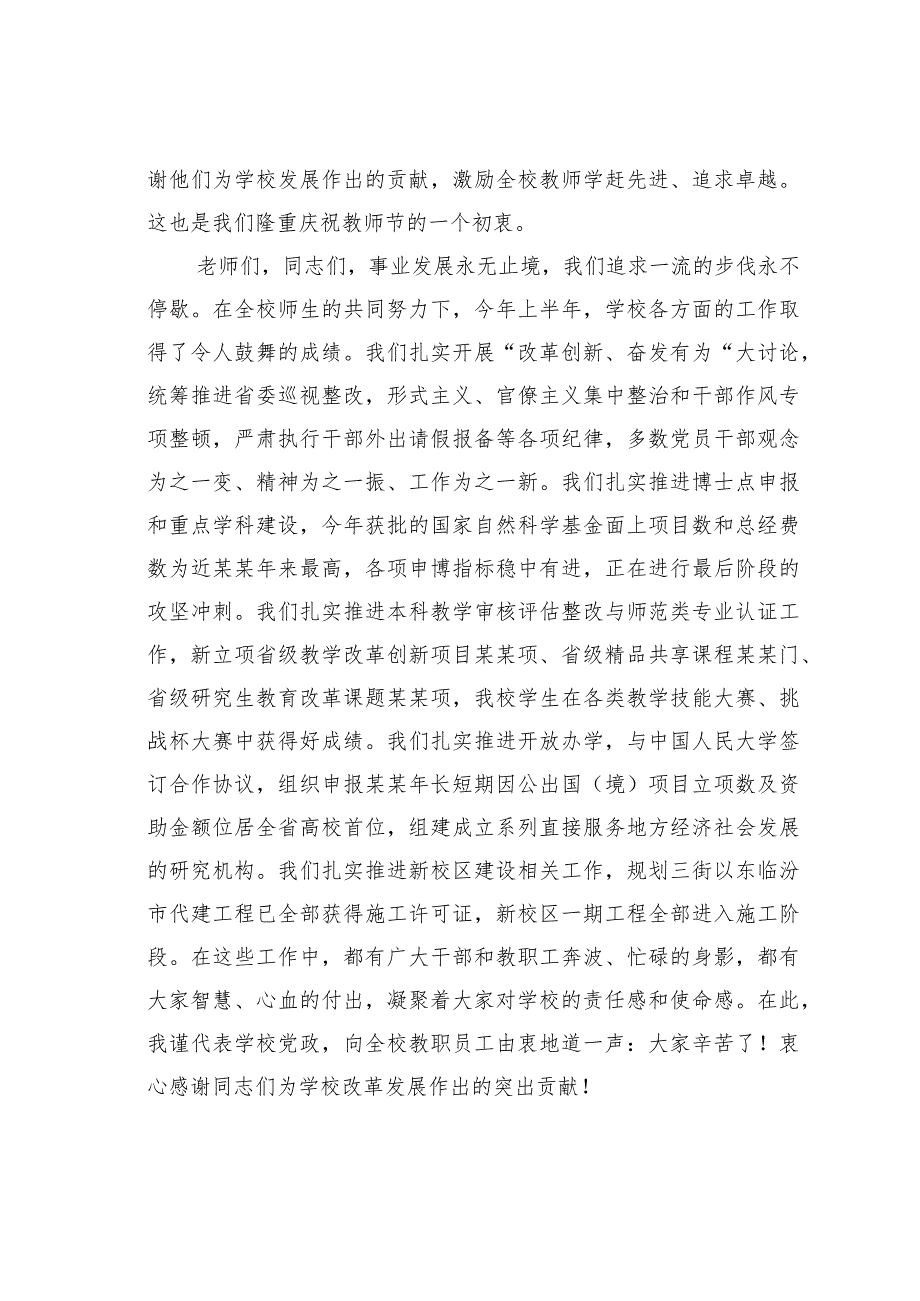 谢他们为学校发展作出的贡献，激励全校教师学赶先进、追求卓越。
这也是我们隆重庆祝教师节的一个初衷。
老师们，同志们，事业发展永无止境，我们追求一流的步伐永不
停歇。在全校师生的共同努力下，今年上半年，学校各方面的工作取
得了令人鼓舞的成绩。我们扎实开展“改革创新、奋发有为“大讨论，
统筹推进省委巡视整改，形式主义、官僚主义集中整治和干部作风专
项整顿，严肃执行干部外出请假报备等各项纪律，多数党员干部观念
为之一变、精神为之一振、工作为之一新。我们扎实推进博士点申报
和重点学科建设，今年获批的国家自然科学基金面上项目数和总经费
数为近某某年来最高，各项申博指标稳中有进，正在进行最后阶段的
攻坚冲刺。我们扎实推进本科教学审核评估整改与师范类专业认证工
作，新立项省级教学改革创新项目某某项、省级精品共享课程某某门、
省级研究生教育改革课题某某项，我校学生在各类教学技能大赛、挑
战杯大赛中获得好成绩。我们扎实推进开放办学，与中国人民大学签
订合作协议，组织申报某某年长短期因公出国（境）项目立项数及资
助金额位居全省高校首位，组建成立系列直接服务地方经济社会发展
的研究机构。我们扎实推进新校区建设相关工作，规划三街以东临汾
市代建工程已全部获得施工许可证，新校区一期工程全部进入施工阶
段。在这些工作中，都有广大干部和教职工奔波、忙碌的身影，都有
大家智慧、心血的付出，凝聚着大家对学校的责任感和使命感。在此，
我谨代表学校党政，向全校教职员工由衷地道一声：大家辛苦了！衷
心感谢同志们为学校改革发展作出的突出贡献！